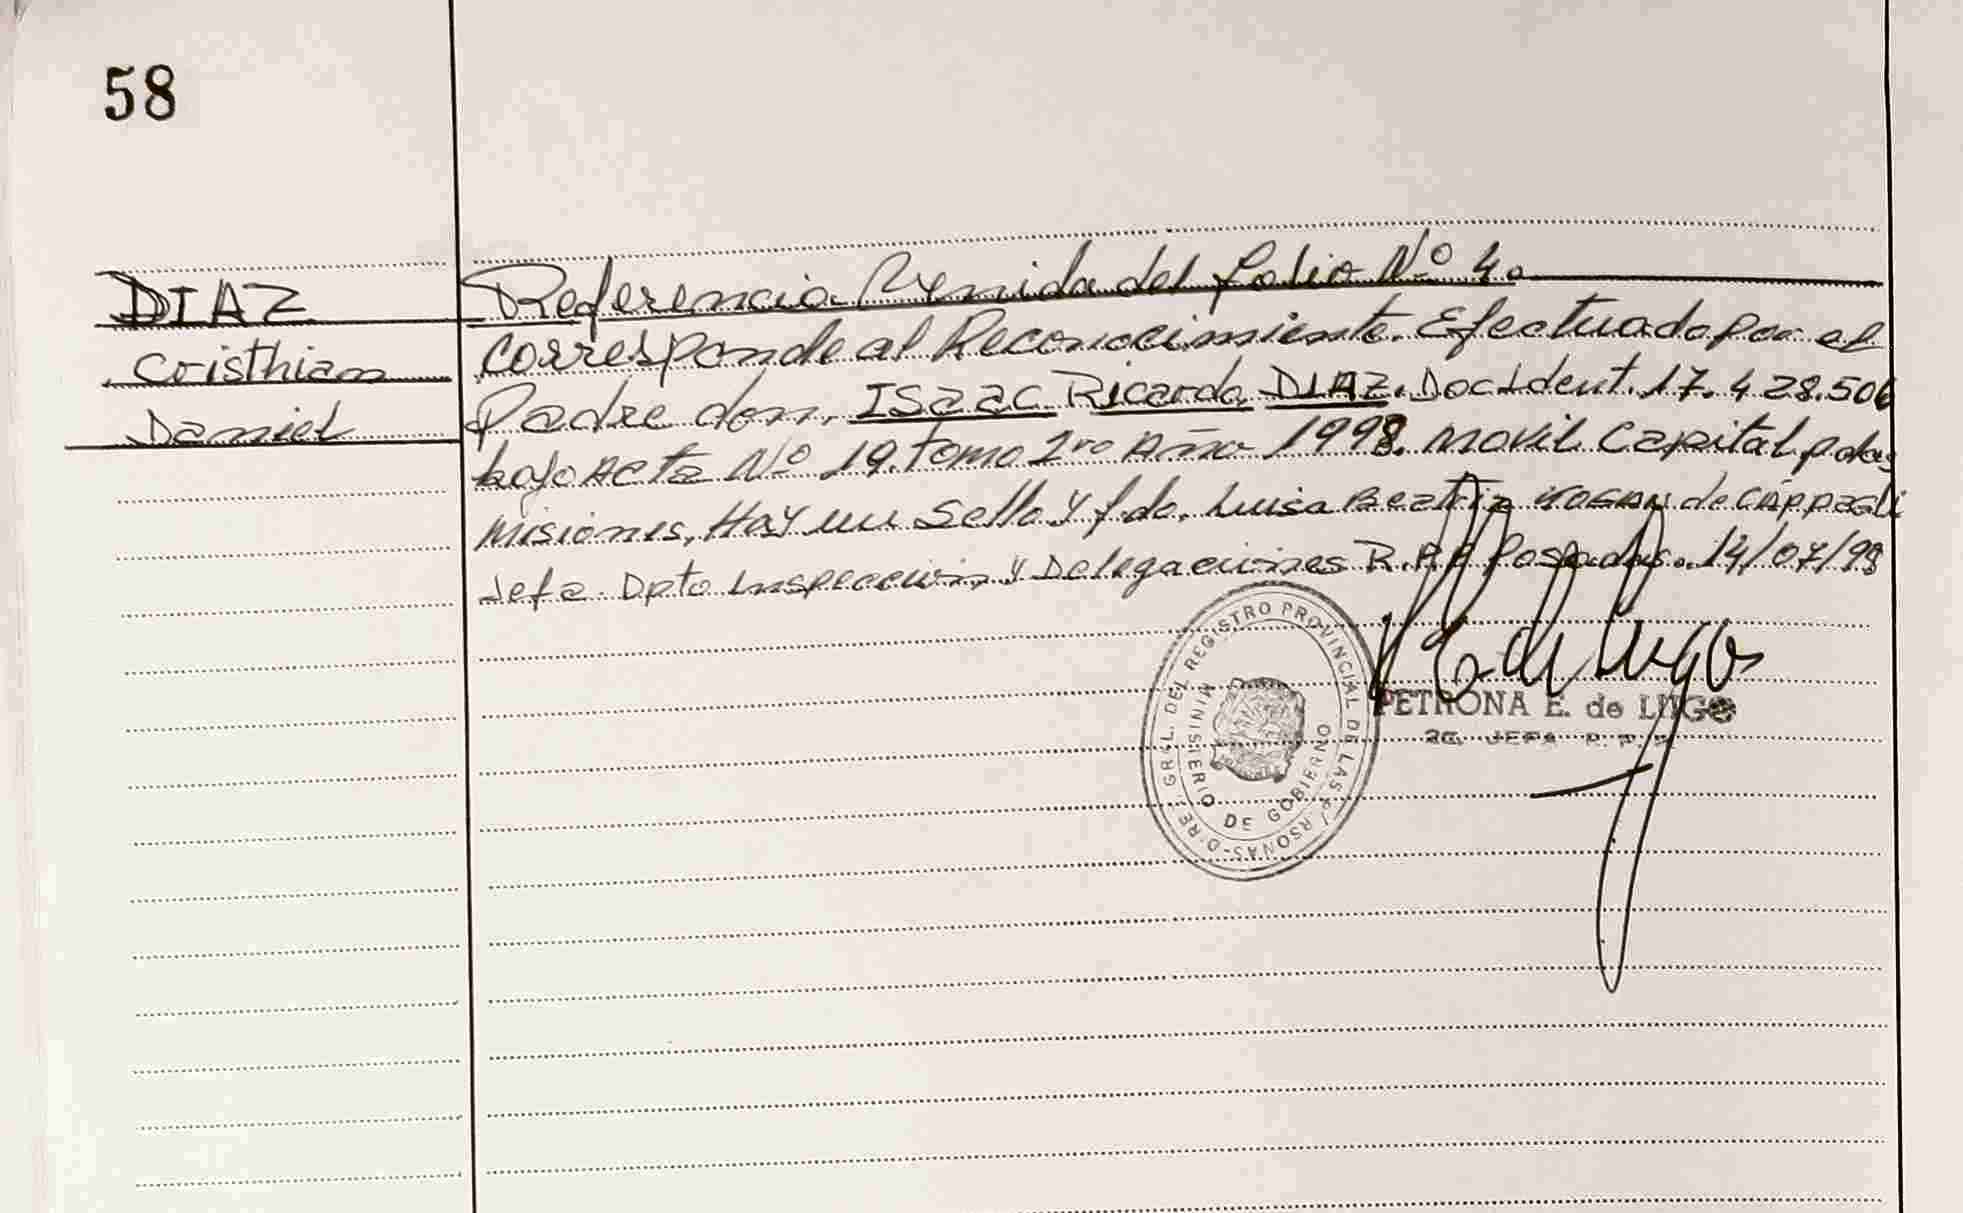 58
DIAZ
Cristhian
Daniel
Referencia Venida del folio Nº 4.
Corresponde al Reconocimiento. Efectuado por el
Padre don, ISaac Ricardo DIAZ. Doc Ident. 17.428.506
bajo Acta Nº 19. Tomo 1ro Año 1998. Movil Capital, pdas
Misiones, Hay un Sello y fdo. Luisa Beatriz de
Jefa. Dpto Inspeccion y Delegaciones R.P.P Posadas. 14/07/98
DIRE. GRAL. DEL REGISTRO PROVINCIAL DE LAS PERSONAS
MINISTERIO DE GOBIERNO
PETRONA E. de LUGO
JEFA